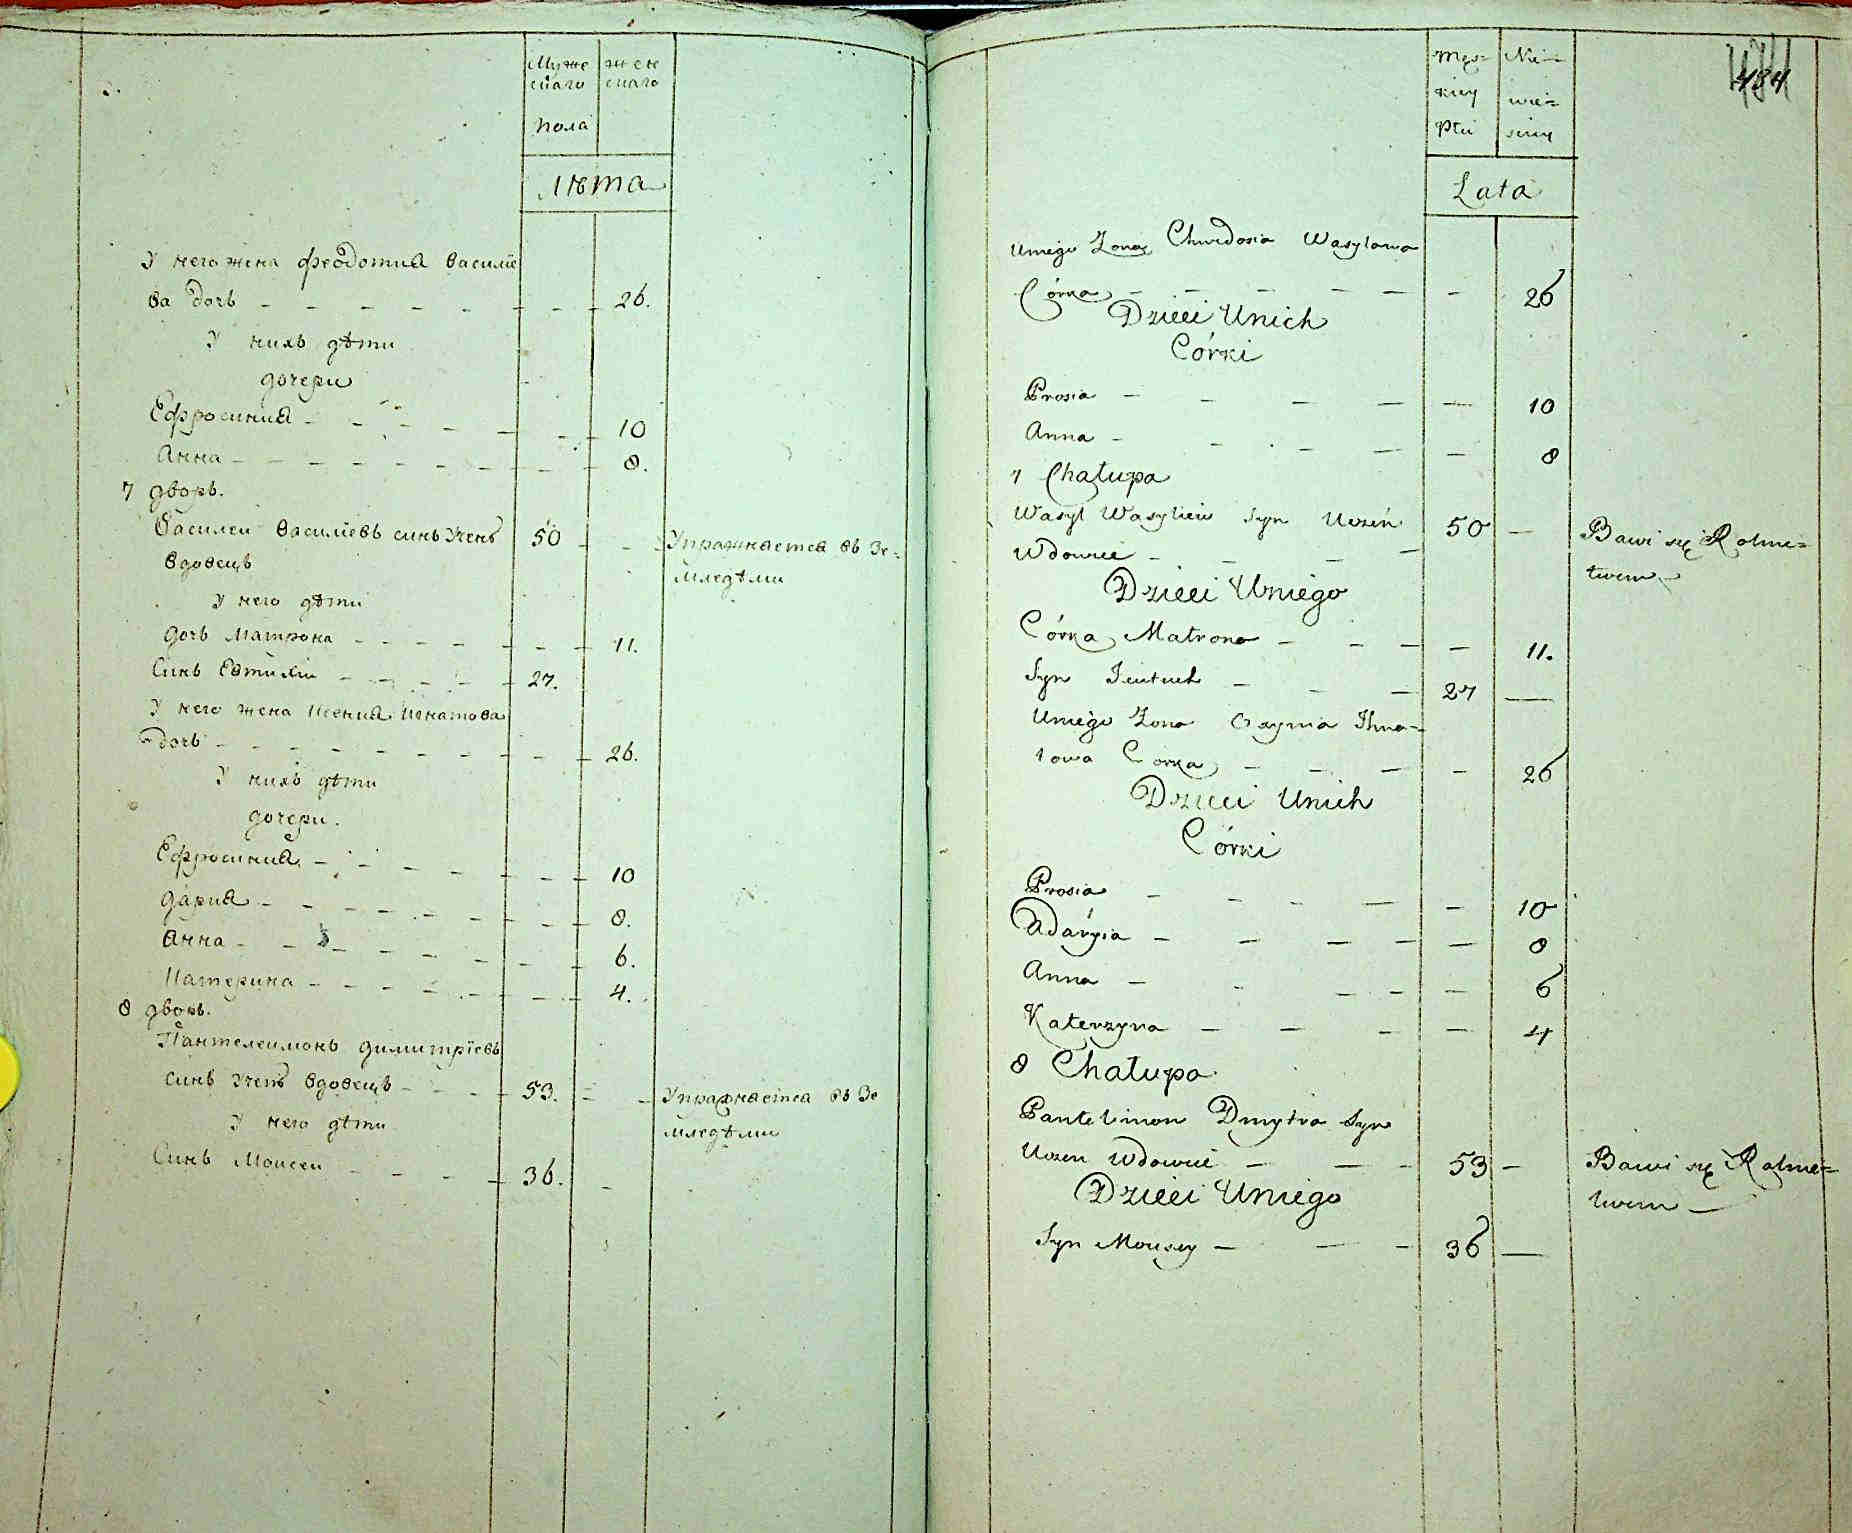 Муже
скаго
пола
жен
скаго
Лѣта
У него жена Феодотиа Василіе
ва дочь 26.
У нихъ дѣти
дочери
Ефросиниа 10
Анна 8.
7 дворъ.
Василеи Василіевъ синъ Учень 50 Упражнается въ Зе=
вдовецъ мледѣли
У него дѣти
дочь Матрона 11.
Синъ Евтихіи 27.
У него жена Ксениа Игнатова
дочь 26.
У нихъ дѣти
дочери.
Ефросиниа 10
Дариа 8.
Анна 6.
Катерина 4.
8 дворъ.
Пантелеимонъ Димитріевъ
синъ Учень вдовецъ 53. Упражнается въ Зе
У него дѣти мледѣли
Синъ Моисеи 36.
484
Męs=
kiey
Płci
Nie=
wie=
sciey
Lata
Uniego Żona Chwedosia Wasylowa
Córka 26
Dzieci Unich
Córki
Prosia 10
Anna 8
7 Chałupa
Wasyl Wasyliew Syn Uczeń 50 Bawi się Rolnic=
Wdowiec twem
Dzieci Uniego
Córka Matrona 11.
Syn Jewtuch 27
Uniego Żona Oxynia Ihna=
towa Corka 26
Dzieci Unich
Córki
Prosia 10
Udaryia 8
Anna 6
Katerzyna 4
8 Chałupa
Pantelimon Dmytra Syn
Uczen Wdowiec 53 Bawi się Rolnic=
Dzieci Uniego twem
Syn Mousey 36